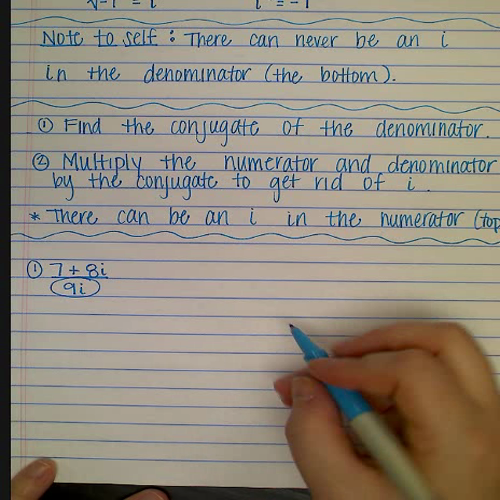 √-1 = i i² = -1
Note to self: There can never be an i
in the denominator (the bottom).
① Find the conjugate of the denominator.
② Multiply the numerator and denominator
by the conjugate to get rid of i.
* There can be an i in the numerator (top
① 7 + 8i
9i